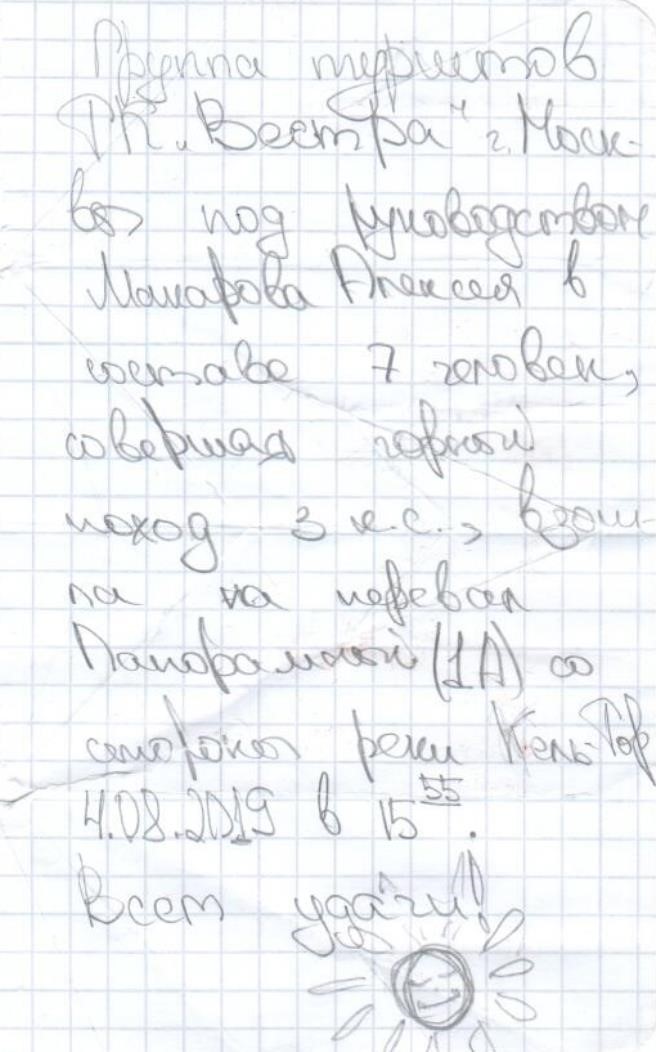 Группа туристов
ТК „Вестра" г. Моск-
вы под руководством
Макарова Алексея в
составе 7 человек,
совершая горный
поход 3 к.с., взош-
ла на перевал
Панорамный (1А) со
стороны реки Кель-Тор
4.08.2019 в 15 55.
Всем удачи!